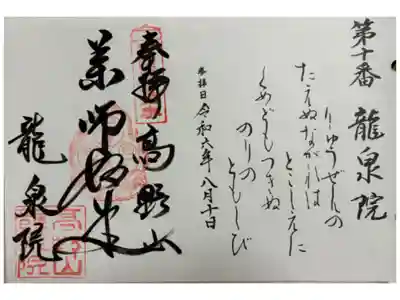 第十番 龍泉院
りゅうせんの
たえぬながれは
とこしえに
くめどもつきぬ
のりの
ともしび
参拝日 令和六年八月十日
奉拝 高野山
薬師如来
龍泉院